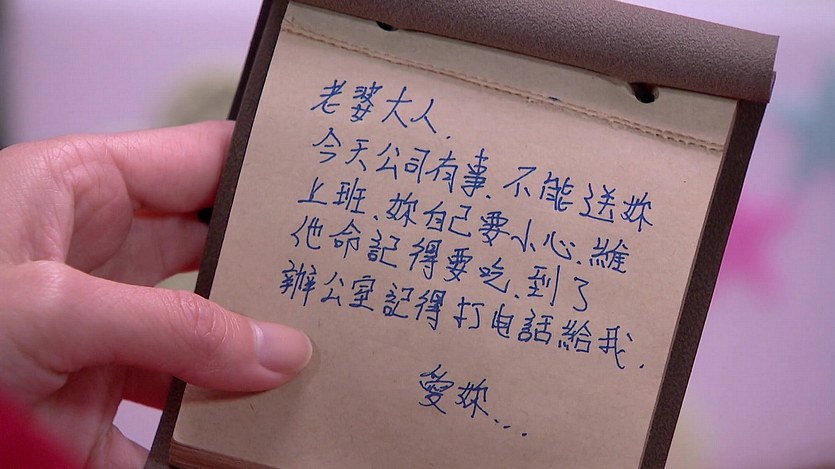 老婆大人.
今天公司有事.不能送妳
上班.妳自己要小心.維
他命記得要吃.到了
辦公室記得打电話給我.
愛妳...